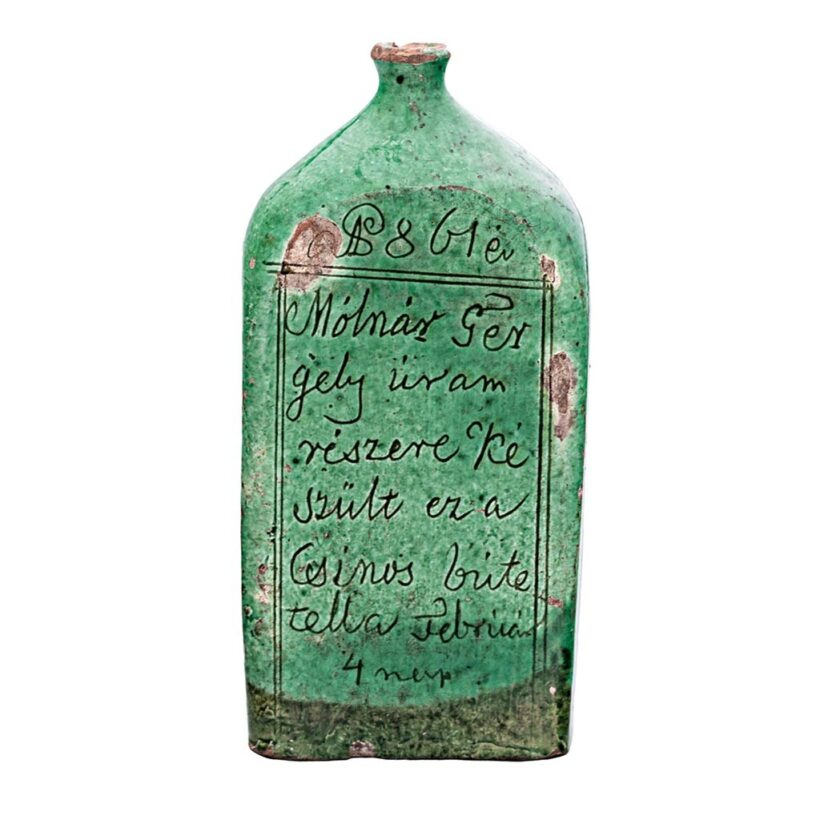 1861 év
Mólnár Ger
gely úram
részere Ké
szűlt ez a
Csinos búte
tella Februá
4 nap